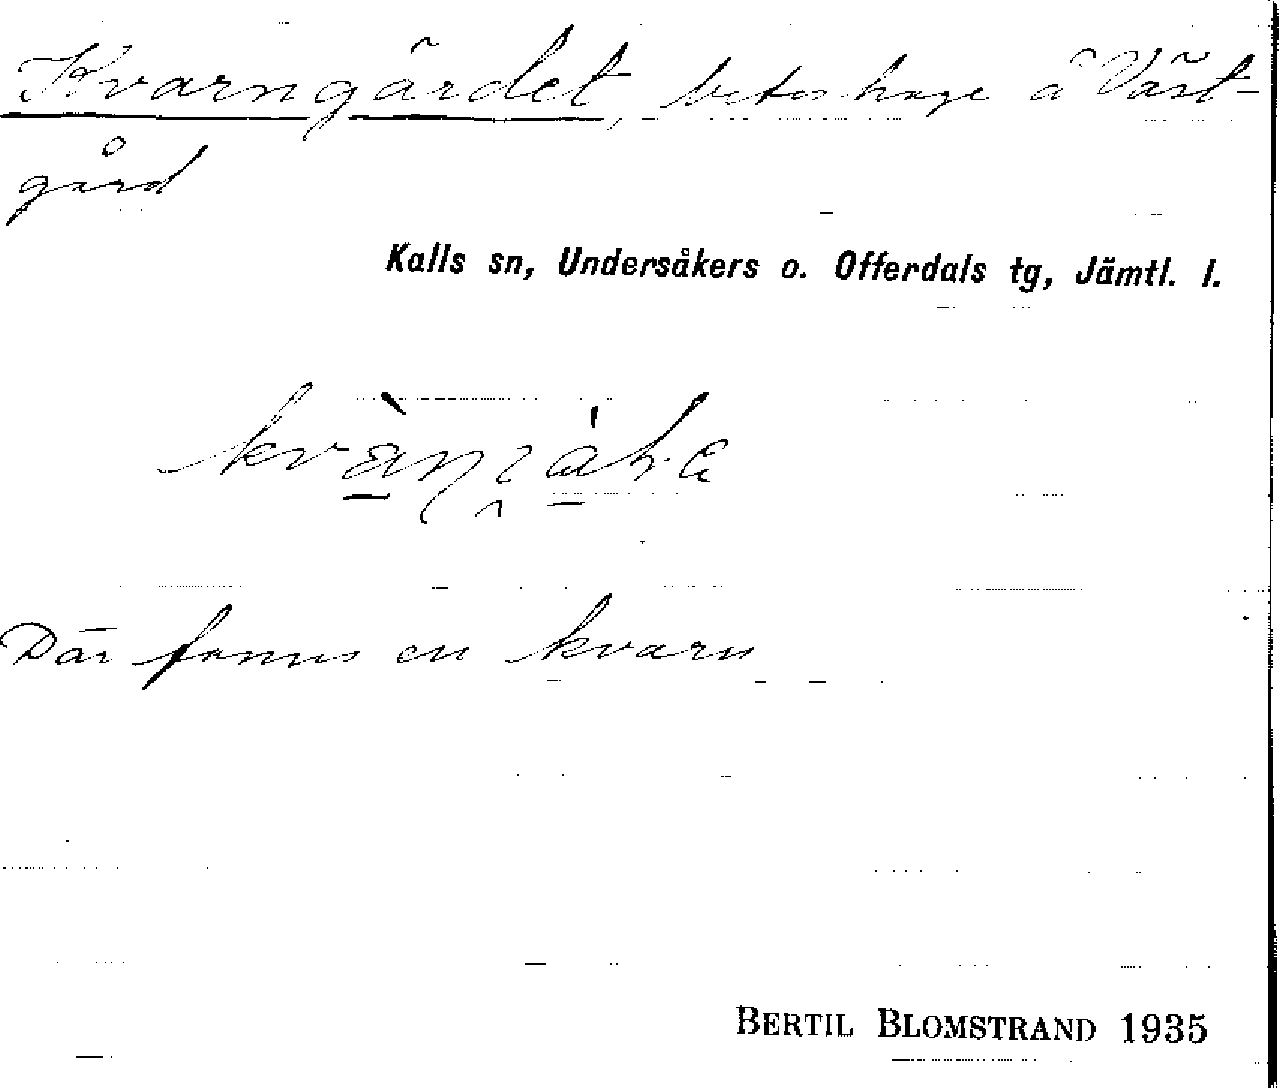 Kvarngärdet, beteshage å Väst-
gård
Kalls sn, Undersåkers o. Offerdals tg, Jämtl. l.
Där fanns en kvarn
BERTIL BLOMSTRAND 1935